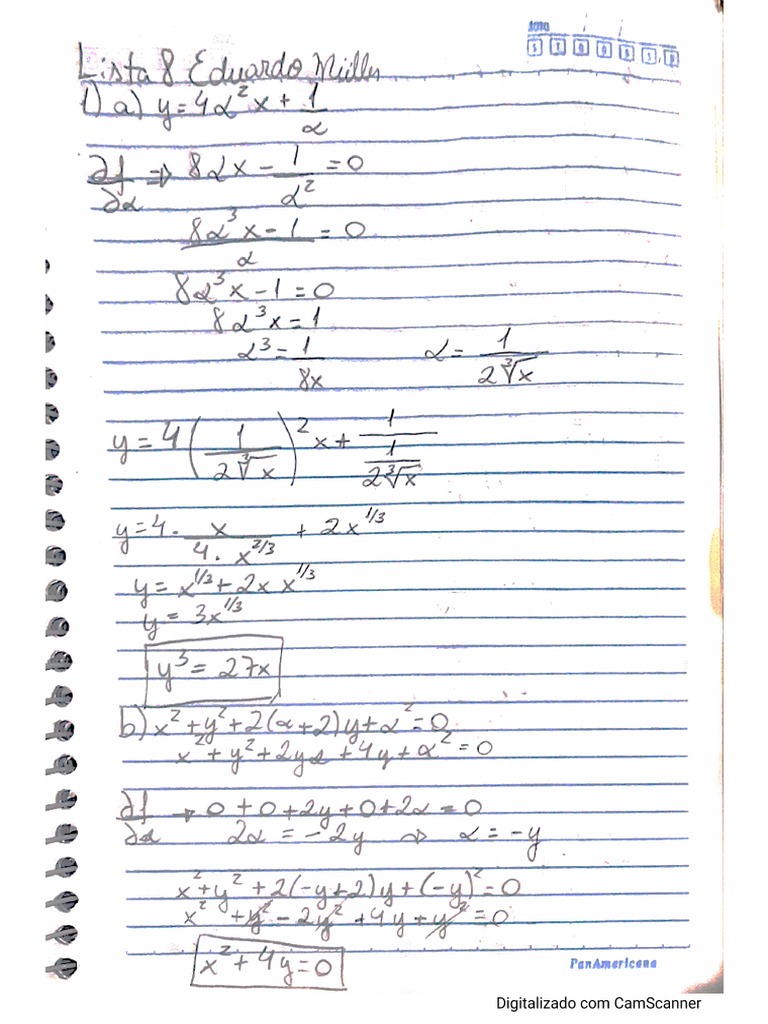 ASTRO
S T Q Q S S D
Lista 8 Eduardo Müller
1) a) y = 4α²x + 1/α
∂f/∂α ⇒ 8αx − 1/α² = 0
(8α³x − 1)/α = 0
8α³x − 1 = 0
8α³x = 1
α³ = 1/8x    α = 1/(2∛x)
y = 4(1/(2∛x))²x + 1/(1/(2∛x))
y = 4 · x/(4 · x^(2/3)) + 2x^(1/3)
y = x^(1/3) + 2x x^(1/3)
y = 3x^(1/3)
y³ = 27x
b) x² + y² + 2(α + 2)y + α² = 0
x² + y² + 2yα + 4y + α² = 0
∂f/∂α → 0 + 0 + 2y + 0 + 2α = 0
2α = −2y ⇒ α = −y
x² + y² + 2(−y + 2)y + (−y)² = 0
x² + y² − 2y² + 4y + y² = 0
x² + 4y = 0
PanAmericana
Digitalizado com CamScanner